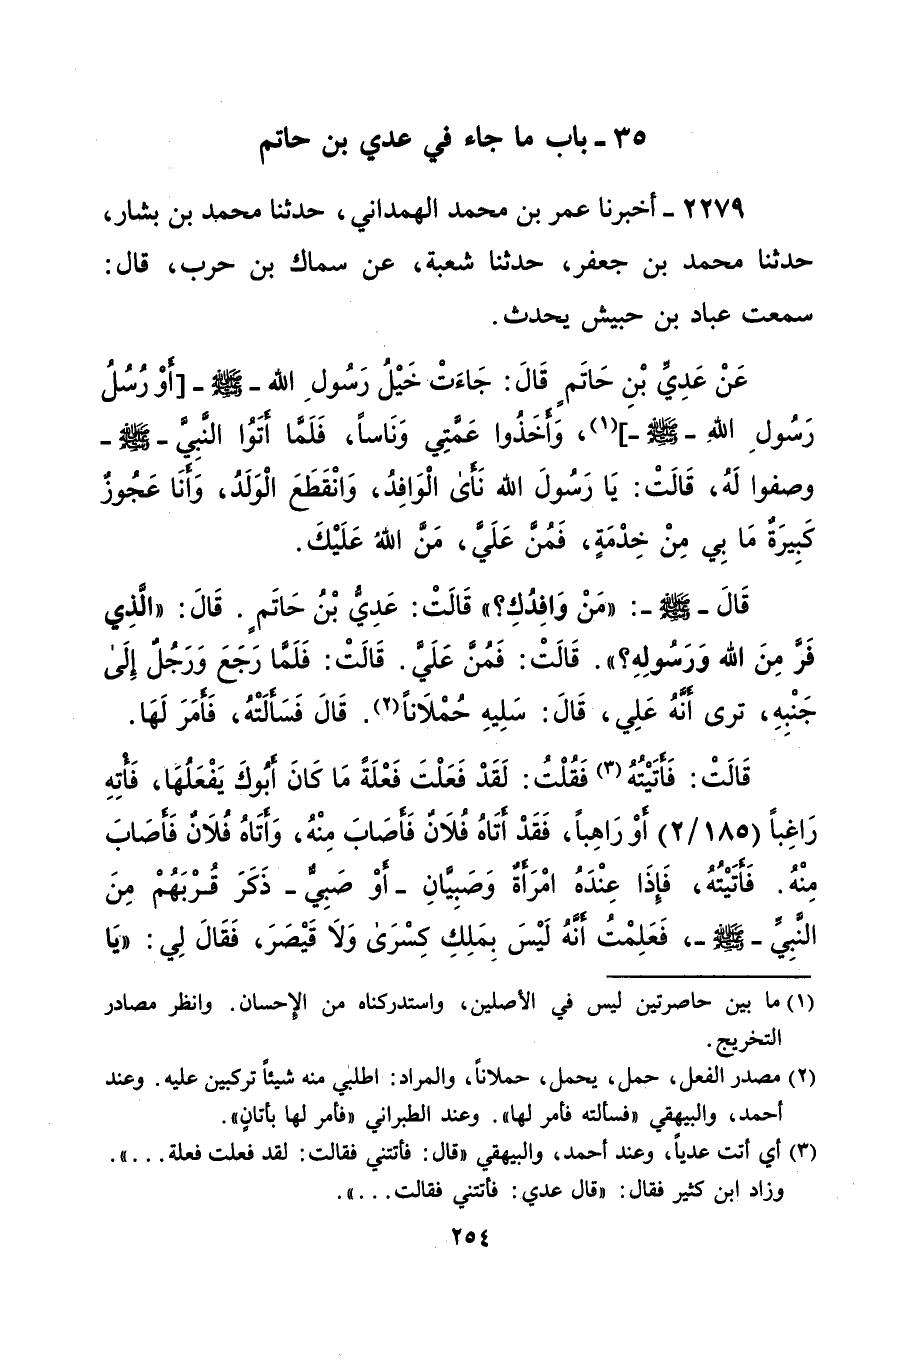 ٣٥ ـ باب ما جاء في عدي بن حاتم
٢٢٧٩ ـ أخبرنا عمر بن محمد الهمداني، حدثنا محمد بن بشار،
حدثنا محمد بن جعفر، حدثنا شعبة، عن سماك بن حرب، قال:
سمعت عباد بن حبيش يحدث.
عَنْ عَدِيِّ بْنِ حَاتَمٍ قَالَ: جَاءَتْ خَيْلُ رَسُولِ الله ـ ﷺ ـ [أَوْ رُسُلُ
رَسُولِ اللهِ ـ ﷺ ـ](١)، وَأَخَذُوا عَمَّتِي وَنَاساً، فَلَمَّا أَتَوُا النَّبِيَّ ـ ﷺ ـ
وصفوا لَهُ، قَالَتْ: يَا رَسُولَ الله نَأَىٰ الْوَافِدُ، وَانْقَطَعَ الْوَلَدُ، وَأَنَا عَجُوزٌ
كَبِيرَةٌ مَا بِي مِنْ خِدْمَةٍ، فَمُنَّ عَلَيَّ، مَنَّ اللهُ عَلَيْكَ.
قَالَ ـ ﷺ ـ: «مَنْ وَافِدُكِ؟» قَالَتْ: عَدِيُّ بْنُ حَاتَمٍ. قَالَ: «الَّذِي
فَرَّ مِنَ الله وَرَسُولِهِ؟». قَالَتْ: فَمُنَّ عَلَيَّ. قَالَتْ: فَلَمَّا رَجَعَ وَرَجُلٌ إِلَىٰ
جَنْبِهِ، ترى أَنَّهُ عَلِي، قَالَ: سَلِيهِ حُمْلَاناً(٢). قَالَ فَسَأَلَتْهُ، فَأَمَرَ لَهَا.
قَالَتْ: فَأَتَيْتُهُ(٣) فَقُلْتُ: لَقَدْ فَعَلْتَ فَعْلَةً مَا كَانَ أَبُوكَ يَفْعَلُهَا، فَأْتِهِ
رَاغِباً (٢/١٨٥) أَوْ رَاهِباً، فَقَدْ أَتَاهُ فُلَانٌ فَأَصَابَ مِنْهُ، وَأَتَاهُ فُلَانٌ فَأَصَابَ
مِنْهُ. فَأَتَيْتُهُ، فَإِذَا عِنْدَهُ امْرَأَةٌ وَصَبِيَّانِ ـ أَوْ صَبِيٌّ ـ ذَكَرَ قُرْبَهُمْ مِنَ
النَّبِيِّ ـ ﷺ ـ، فَعَلِمْتُ أَنَّهُ لَيْسَ بِمَلِكِ كِسْرَىٰ وَلَا قَيْصَرَ، فَقَالَ لِي: «يَا
(١) ما بين حاصرتين ليس في الأصلين، واستدركناه من الإحسان. وانظر مصادر
التخريج.
(٢) مصدر الفعل، حمل، يحمل، حملاناً، والمراد: اطلبي منه شيئاً تركبين عليه. وعند
أحمد، والبيهقي «فسألته فأمر لها». وعند الطبراني «فأمر لها بأتانٍ».
(٣) أي أتت عدياً، وعند أحمد، والبيهقي «قال: فأتتني فقالت: لقد فعلت فعلة...».
وزاد ابن كثير فقال: «قال عدي: فأتتني فقالت...».
٢٥٤